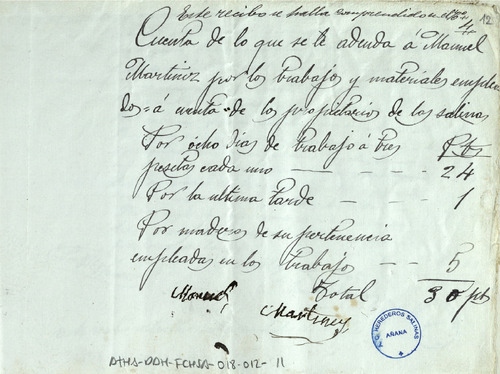 Este recibo se halla comprendido en el Nº
12
4
Cuenta de lo que se le adeuda á Manuel
Martinez por los trabajos y materiales emplea
dos=á cuenta=de los propietarios de las salinas
Por ocho dias de trabajo á tres Pts
pesetas cada uno — — — 24
Por la ultima tarde — — 1
Por maderos de su pertenencia
empleados en los trabajos — 5
Total 30 pts
Manuel
Martinez
HEREDEROS SALINAS
AÑANA
ATHA-DAH-FCHSA-018-012-11